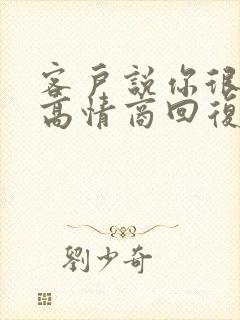 客戶説你很
高情商回復
劉少奇